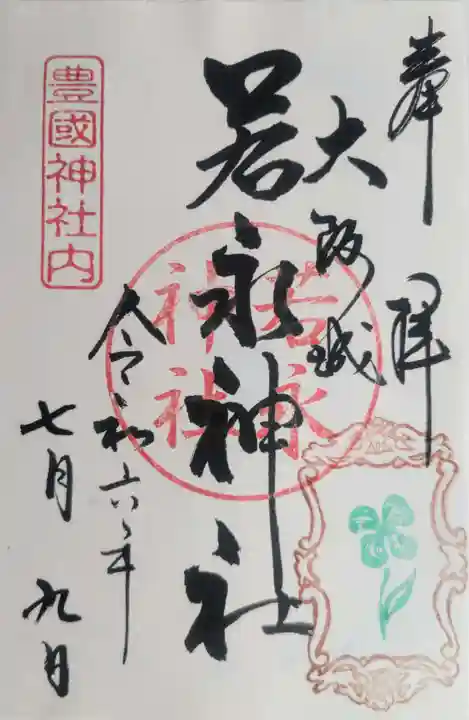 奉拝
大阪城
若永神社
若永神社
豊國神社内
令和六年
七月九日